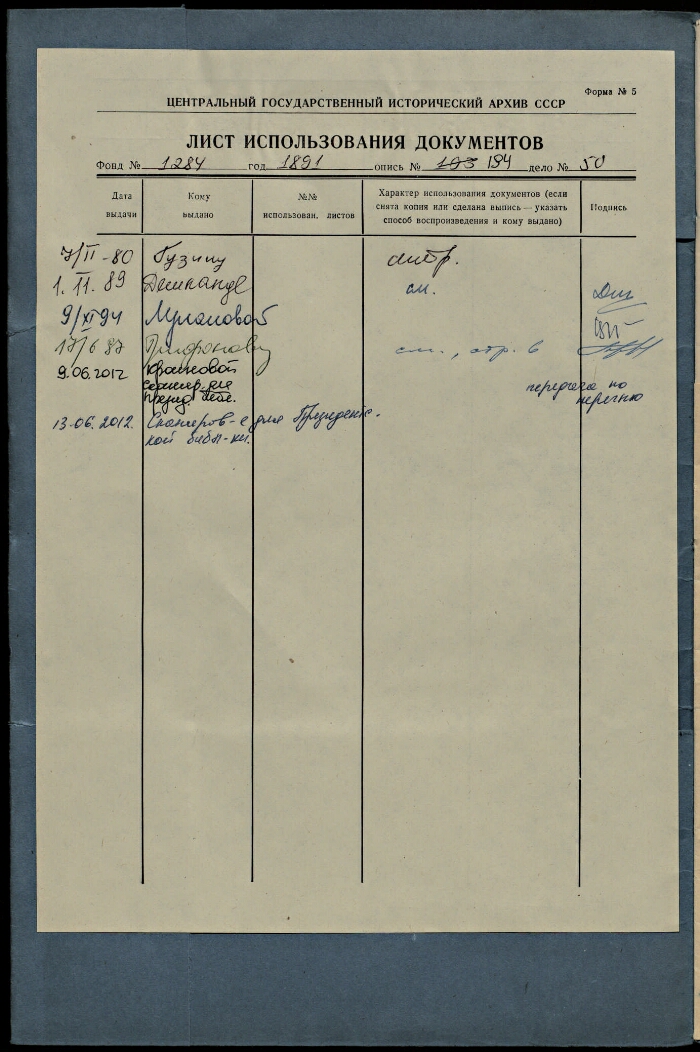 Форма № 5
ЦЕНТРАЛЬНЫЙ ГОСУДАРСТВЕННЫЙ ИСТОРИЧЕСКИЙ АРХИВ СССР
ЛИСТ ИСПОЛЬЗОВАНИЯ ДОКУМЕНТОВ
Фонд № 1284 год 1891 опись № 193 194 дело № 50
Дата выдачи
Кому выдано
№№ использован. листов
Характер использования документов (если
снята копия или сделана выпись — указать
способ воспроизведения и кому выдано)
Подпись
7/II -80 Гузину
1. II. 89 см.
9/XI 94
17/6 87 см., стр. 6
9.06.2012
передача по
перечню
13.06.2012. для Президентс-
кой биб-ки.